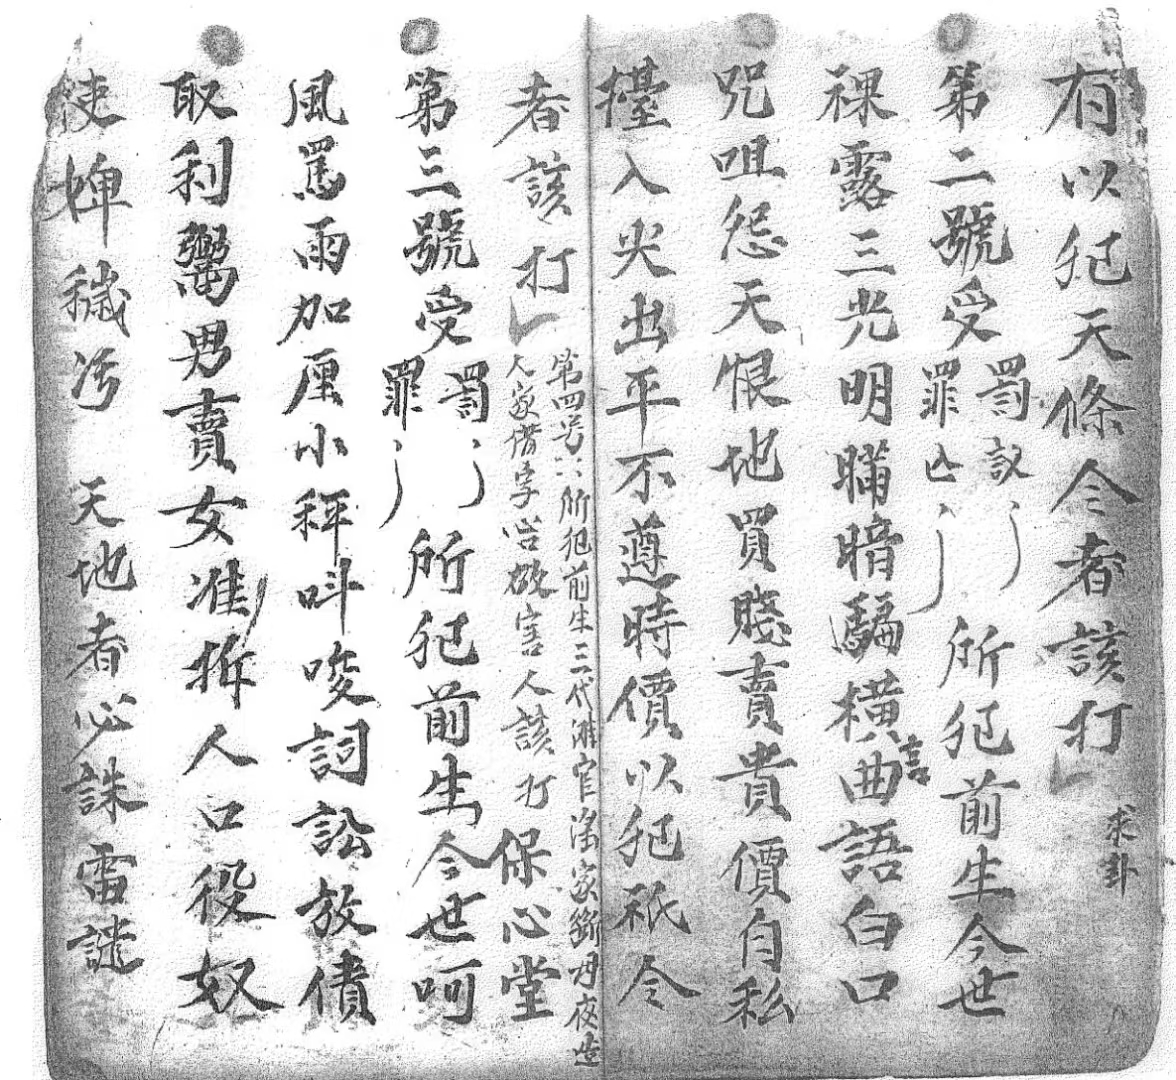 有以犯天條令者該打
求卦
第二號受罰罪 所犯前生今世
裸露三光明瞞暗騙橫言曲語白口
咒咀怨天恨地買賤賣貴價自私
擡入尖出平不遵時價以犯祇令
者該打
第四号 所犯前生三代 官 家 母夜
人家借字 害人該打
保心堂
第三號受罰罪 所犯前生今世呵
風罵雨加厘小秤呌唆詞訟放債
取利鬻男賣女准拆人口役奴
使婢穢污 天地者必誅雷